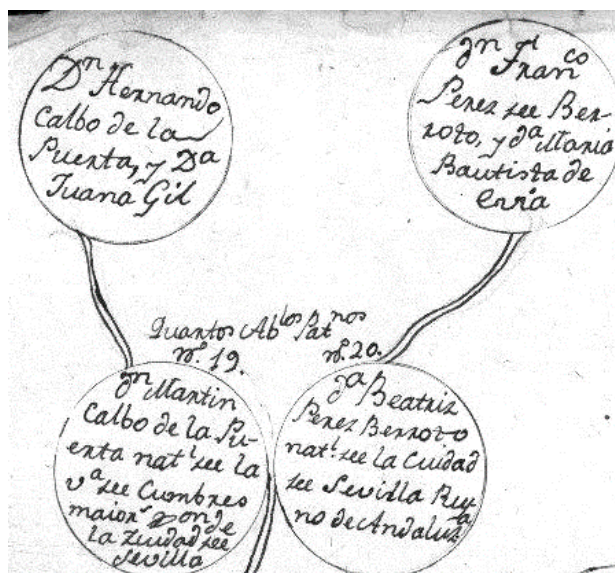 Dⁿ Hernando
Calbo de la
Puerta, y Dᵃ
Juana Gil
dⁿ Franᶜᵒ
Perez de Ber-
roto, y dᵃ Maria
Bautista de
Erria
Quartos Abˡᵒˢ Patⁿᵒˢ
nº. 19. nº. 20.
dⁿ Martin
Calbo de la Pu-
erta natˡ de la
vᵃ de Cumbres
maiorˢ
la Ziudad de
Sevilla
dᵃ Beatriz
Perez Berroto
natˡ de la Ciudad
de Sevilla Rey-
no de Andaluzᵃ